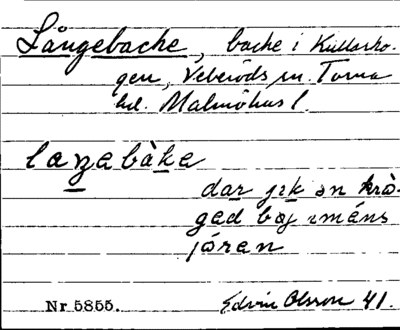 Långebacke, backe i Kullasko-
gen, Veberöds sn. Torna
hd. Malmöhus l.
laŋebàke
dar jɪk ən krò-
gad bæj ɪmáns
jóren
Nr 5855. Edvin Olsson 41.